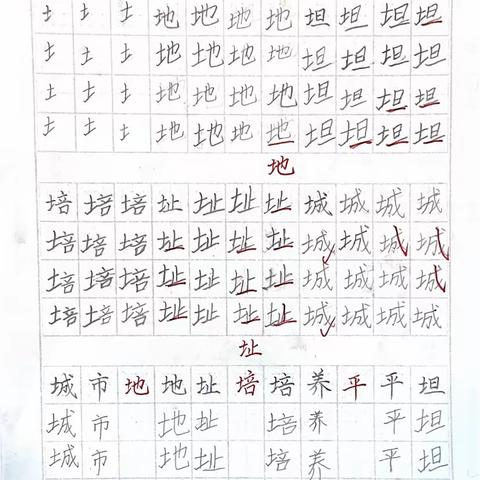 土 土 土 地 地 地 地 坦 坦 坦 坦
土 土 土 地 地 地 地 坦 坦 坦 坦
土 土 土 地 地 地 地 坦 坦 坦 坦
土 土 土 地 地 地 地 坦 坦 坦 坦
地
培 培 培 址 址 址 址 城 城 城 城
培 培 培 址 址 址 址 城 城 城 城
培 培 培 址 址 址 址 城 城 城 城
培 培 培 址 址 址 址 城 城 城 城
址
城 市 地 地 址 培 培 养 平 平 坦
城 市 地 址 培 养 平 坦
城 市 地 址 培 养 平 坦